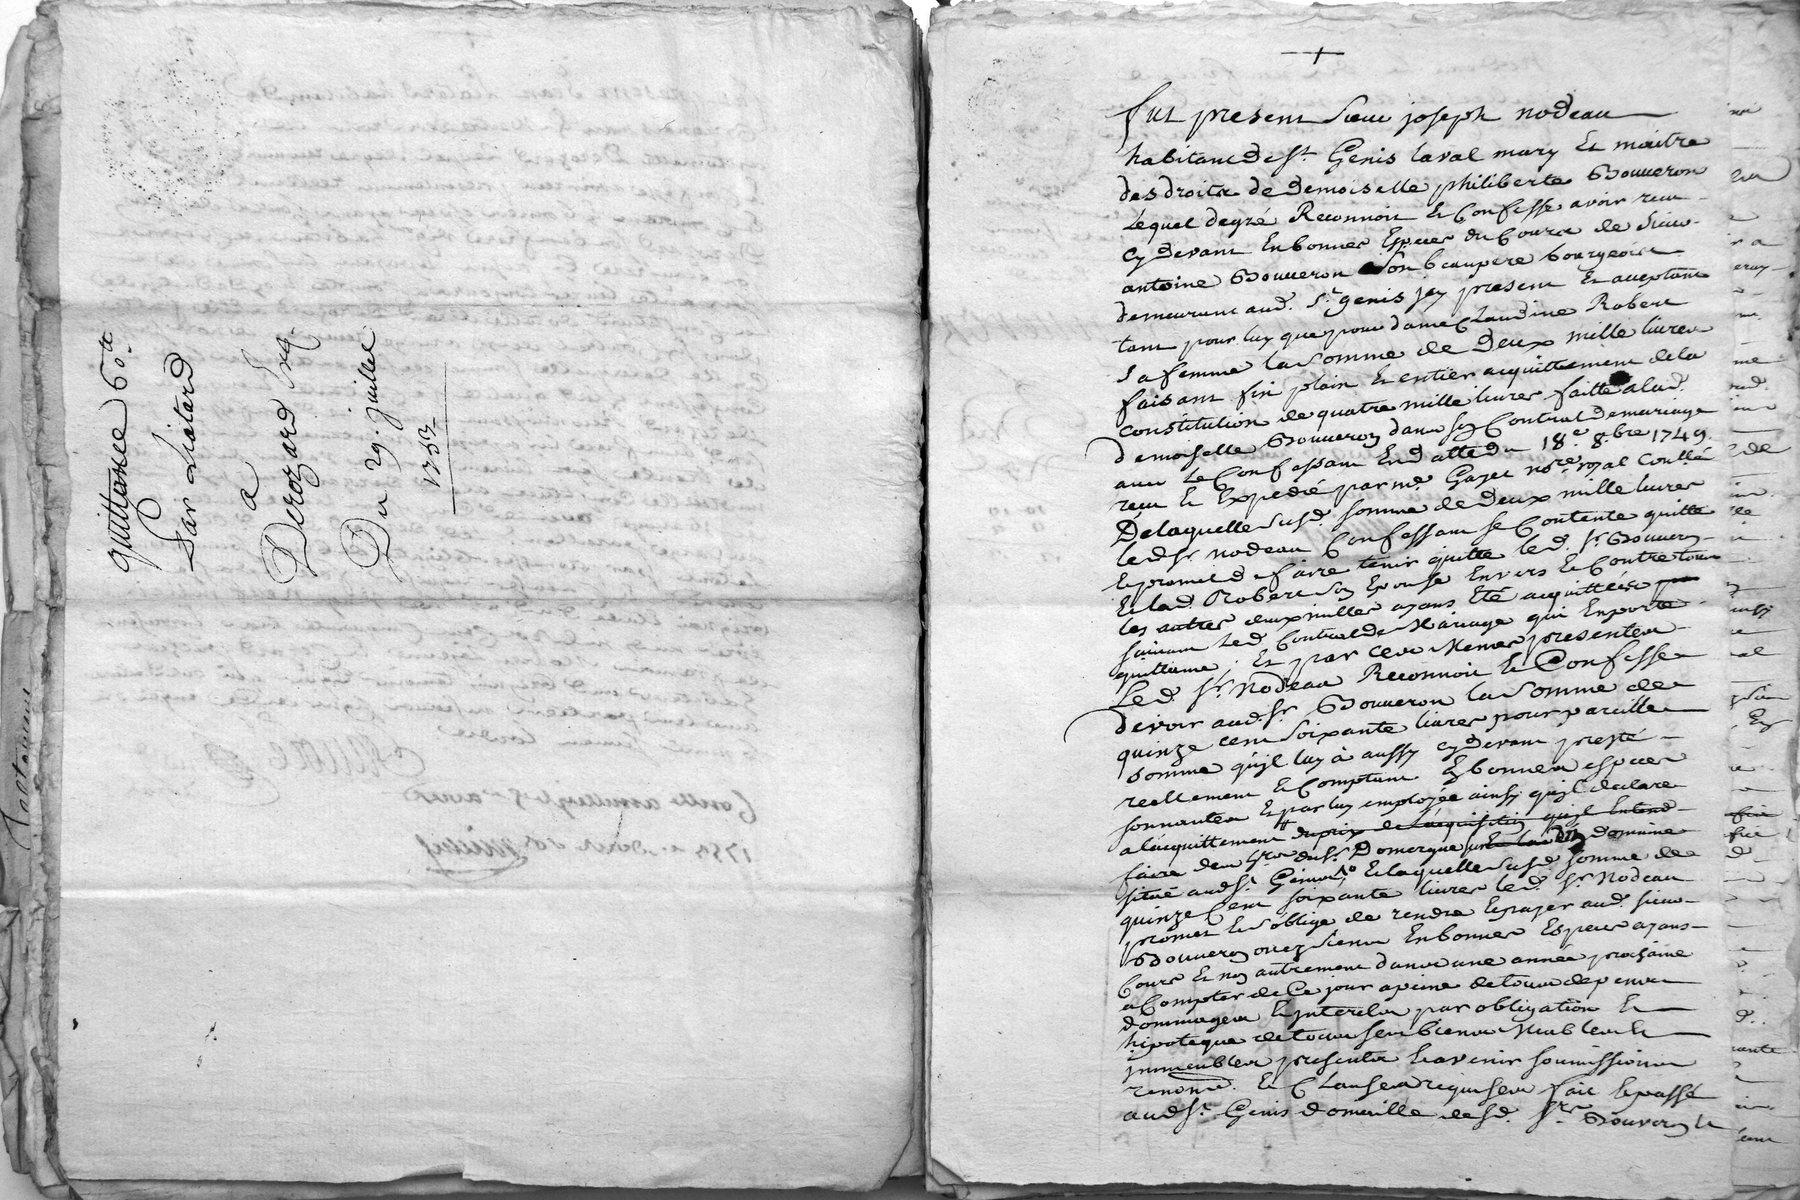 quittance 60 lt
Par Liatard
a
Derozard
Du 29. juillet
1753
fut present Sieur joseph nodeau
habitant de St. Genis Laval mary et maitre
des droits de demoiselle philiberte Bouveron
Lequel de gré Reconnoit et Confesse avoir receu
cy devant En bonnes Especes du Cours de Sieur
antoine Bouveron Son beaupere bourgeois
demeurant aud. St. genis jcy present et acceptant
tant pour luy que pour dame Claudine Robert
Sa femme la Somme de Deux mille livres
faisant fin plain et entier acquittement de la
constitution de quatre mille livres faitte a lad.
demoiselle Bouveron dans son Contrat de mariage
avec Le Confessant En datte du 18e. 8.bre 1749.
receu et Expedié par me. Gayet no.re royal
De laquelle Susd. Somme de Deux mille livres
led. Sr. nodeau Confessant Se Contente quitte
et promet de faire tenir quitte led. Sr. Bouveron
Et lad. Robert Son Epouse Envers et Contre tous
les autres deux milles ayant Eté acquittées
suivant led. Contrat de Mariage qui Emporte
quittance, Et par Ces Memes presentes
Led. Sr. Nodeau Reconnoit et Confesse
devoir aud. Sr. Bouveron la Somme de
quinze cent soixante livres pour pareille
Somme qu'jl luy à aussy cy devant presté
reellement et comptant En bonnes especes
sonnantes Et par luy employée ainsy qu'jl declare
a lacquittement du prix de l'acquisition qu'jl Entend
faire du Sr. Domergue domaine
situé aud. St. Genis Et laquelle Susd. Somme de
quinze Cent soixante livres led. Sr. Nodeau
promet et S'oblige de rendre Et payer aud. Sieur
Bouveron ou ez Siens En bonnes Especes ayans
Cours et non autrement dans une année prochaine
a Compter de Ce jour a peine de tous depens
dommages et jnterets par obligation et
hipoteque de tous Ses biens Meubles et
jmmeubles presents et avenir soumissions
renonc. et Clauses requises fait et passé
aud. St. Genis domicille desd. Sr. Bouveron et